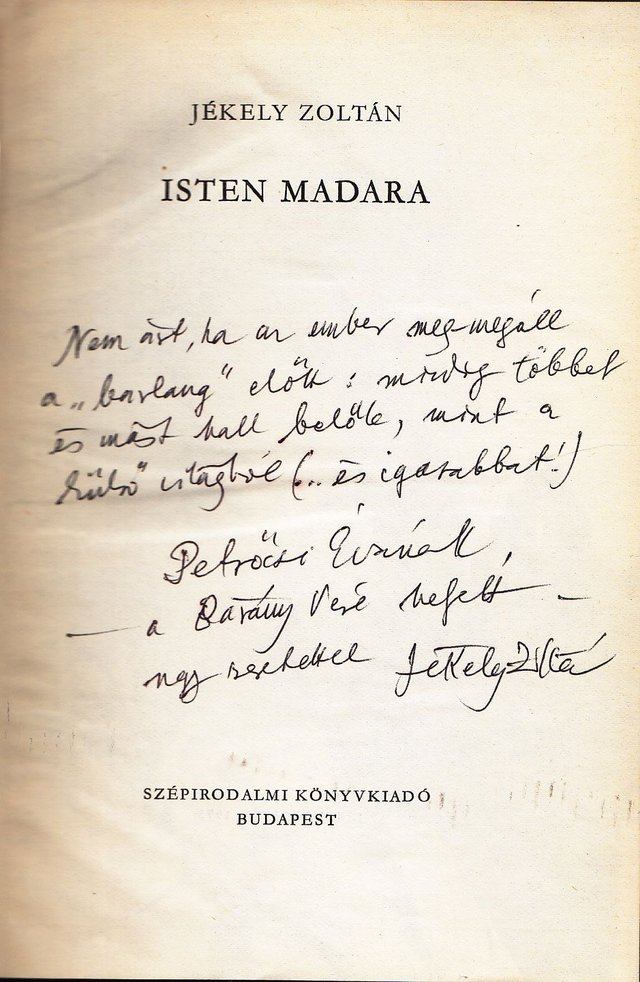 JÉKELY ZOLTÁN
ISTEN MADARA
Nem árt, ha az ember meg-megáll
a „barlang" előtt: mindig többet
és mást hall belőle, mint a
külső világból (... és igazabbat!)
Petrőczi Évának,
— a Bárány Vére helyett —
nagy szeretettel Jékely Zoltán
SZÉPIRODALMI KÖNYVKIADÓ
BUDAPEST